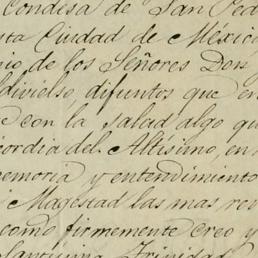 Condesa de San Ped
ta Ciudad de México
io de los Señores Don
ldivielso difuntos que en
e con la salud algo qu
cordia del Altísimo, en
memoria y entendimiento
i Magestad las mas rev
como firmemente creo y
Santísima Trinidad